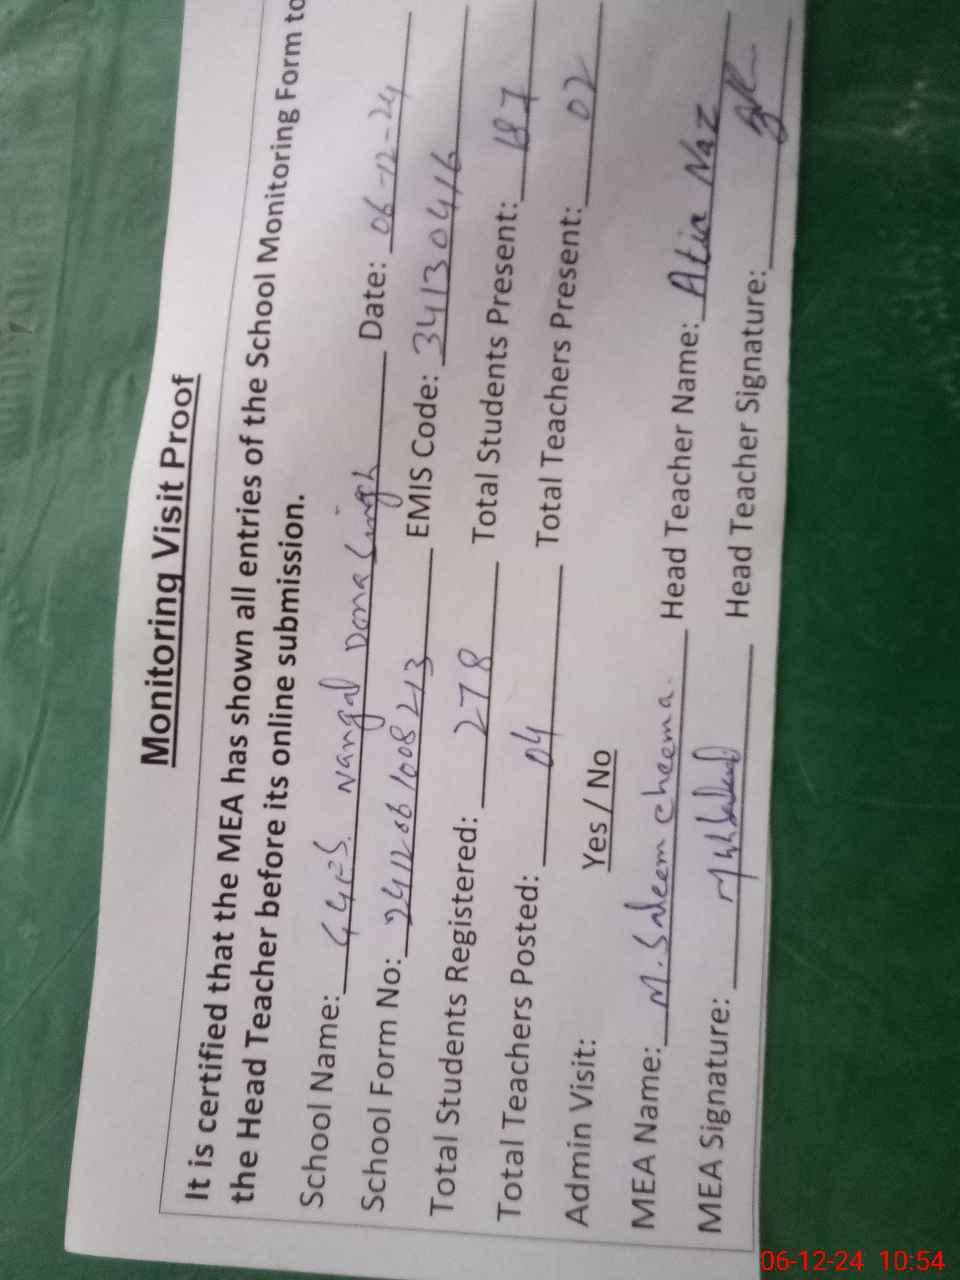 Monitoring Visit Proof
It is certified that the MEA has shown all entries of the School Monitoring Form to
the Head Teacher before its online submission.
School Name: GGES. Nangal Dona Singh Date: 06-12-24
School Form No: 2412061008213 EMIS Code: 34130416
Total Students Registered: 278 Total Students Present: 187
Total Teachers Posted: 04 Total Teachers Present: 02
Admin Visit: Yes / No
MEA Name: M. Saleem cheema. Head Teacher Name: Atia Naz
MEA Signature: Head Teacher Signature:
06-12-24 10:54